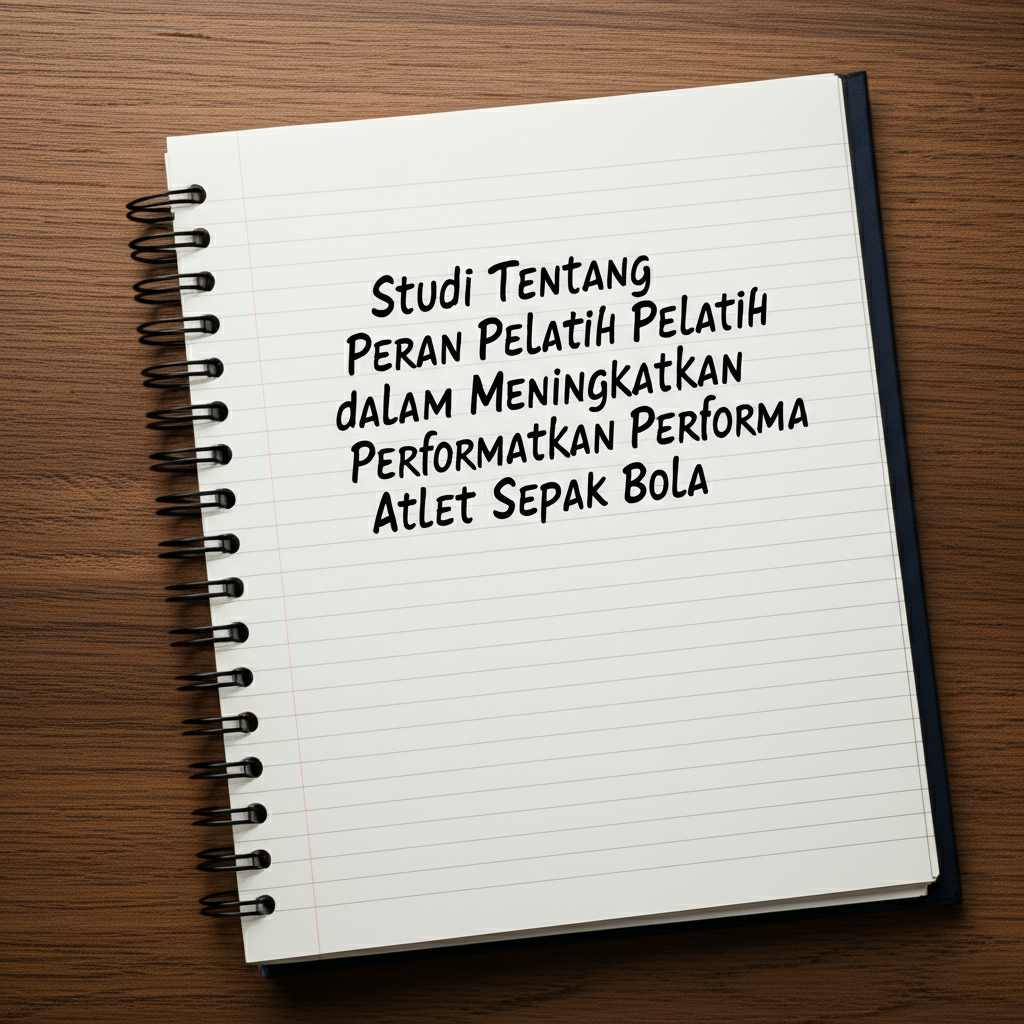 Studi Tentang
Peran Pelatih Pelatih
dalam Meningkatkan
Performatkan Performa
Atlet Sepak Bola